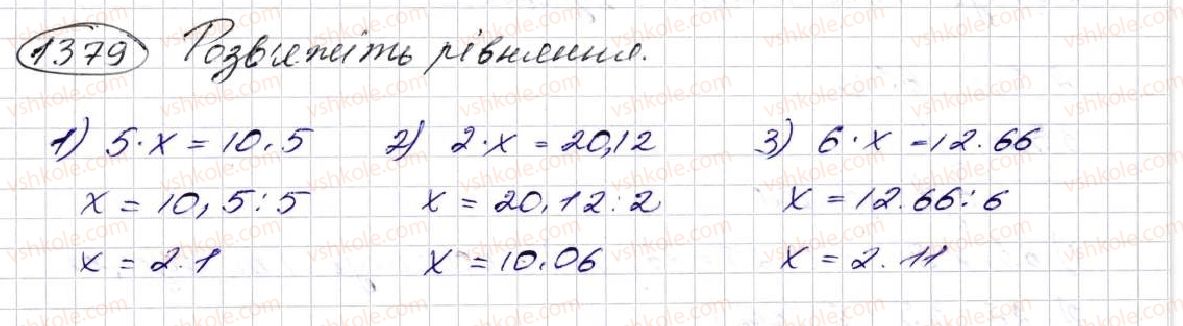 1379 Розв'яжіть рівняння.
1) 5·x = 10.5 2) 2·x = 20,12 3) 6·x = 12.66
x = 10,5:5 x = 20,12:2 x = 12.66:6
x = 2.1 x = 10.06 x = 2.11